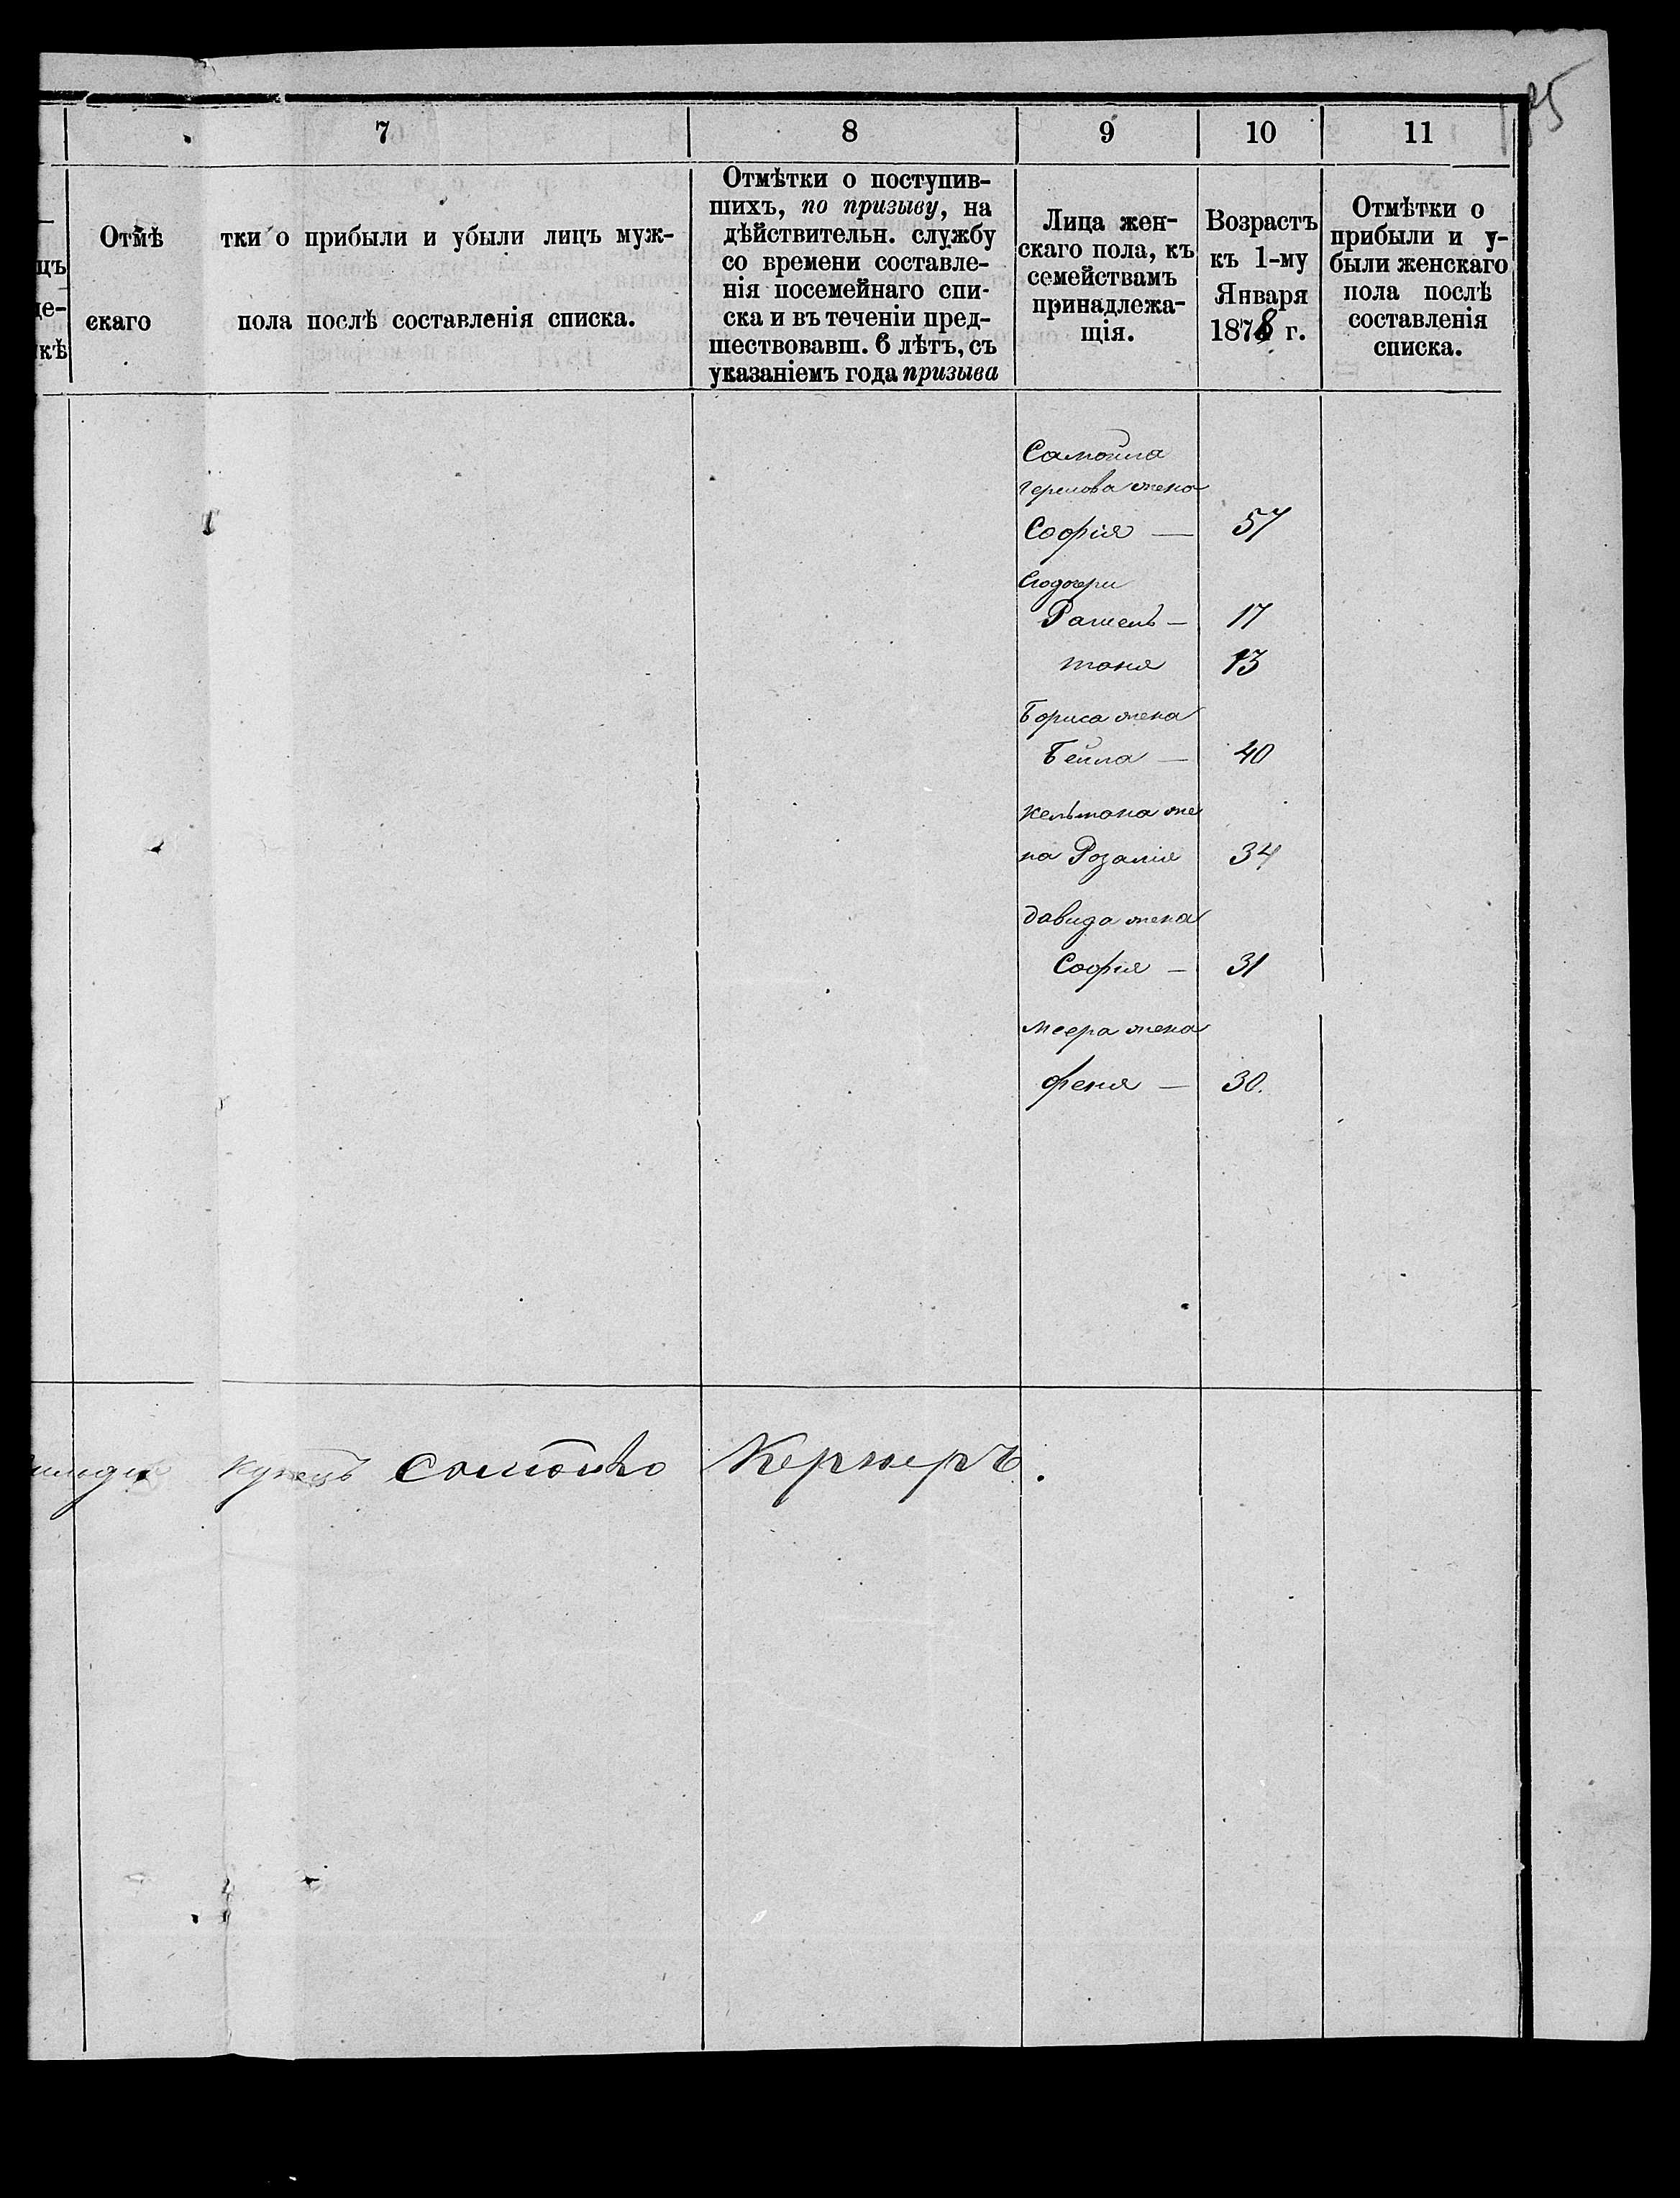 185
7
8
9
10
11
цъ
де-
кѣ
Отмѣ тки о прибыли и убыли лицъ муж-
скаго пола послѣ составленія списка.
Отмѣтки о поступив-
шихъ, по призыву, на
дѣйствительн. службу
со времени составле-
нія посемейнаго спи-
ска и въ теченіи пред-
шествовавш. 6 лѣтъ, съ
указаніемъ года призыва
Лица жен-
скаго пола, къ
семействамъ
принадлежа-
щія.
Возрастъ
къ 1-му
Января
1878 г.
Отмѣтки о
прибыли и у-
были женскаго
пола послѣ
составленія
списка.
Самойла
Герилова жена
Софія — 57
Его дочери
Рашель — 17
Маня 13
Бориса жена
Бейла — 40
Кельмана же
на Розалія 34
Давида жена
София — 31
Меера жена
Феня — 30.
купецъ Самойло Кернеръ.